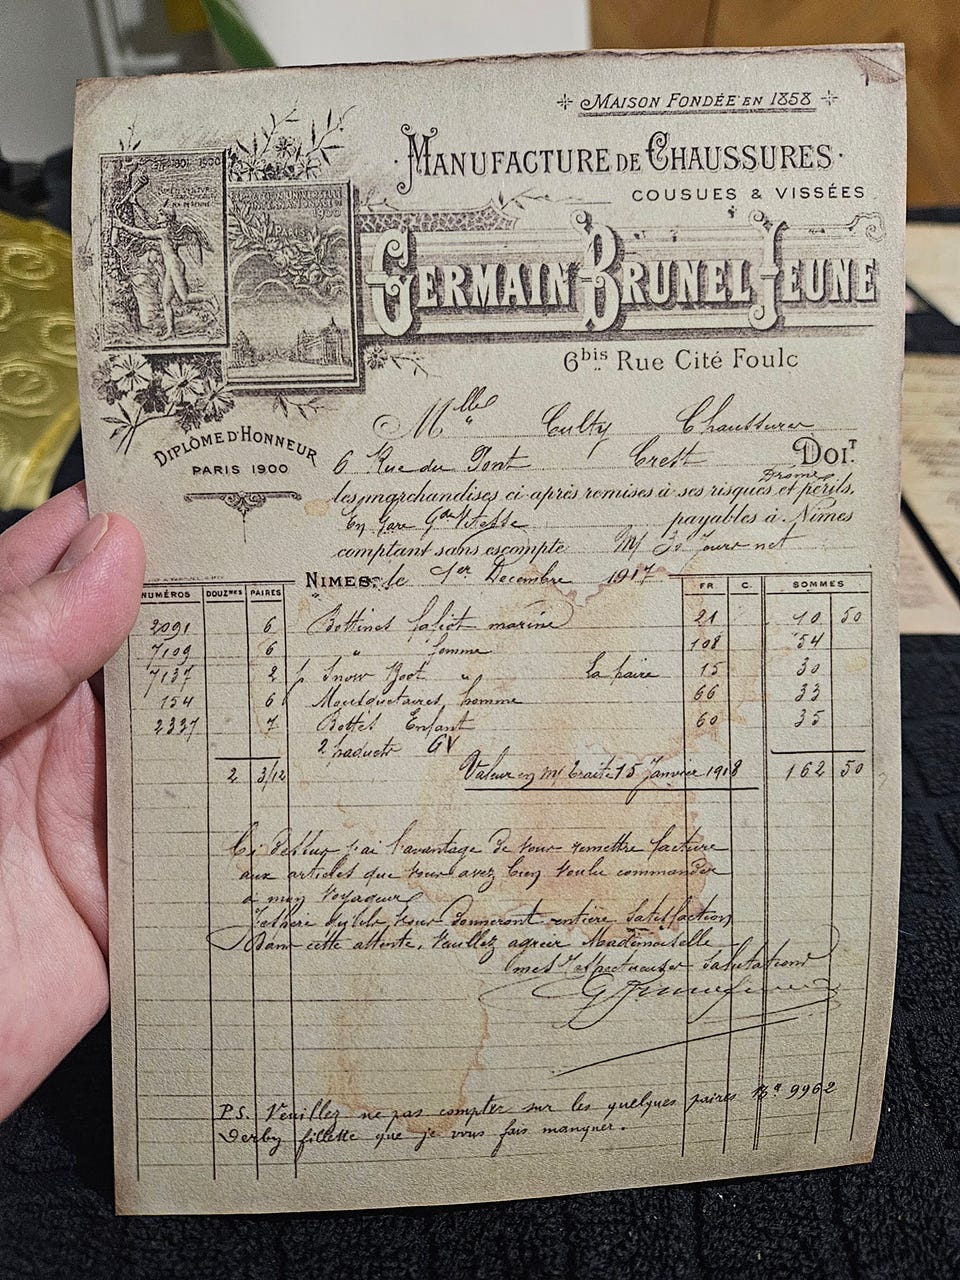 MAISON FONDÉE EN 1858
MANUFACTURE DE CHAUSSURES
COUSUES & VISSÉES
GERMAIN BRUNEL JEUNE
6bis Rue Cité Foulc
1900
1900
PARIS
DIPLÔME D'HONNEUR
PARIS 1900
Mlles Culty Chaussures
6 Rue du Pont Crest DOIT
Drôme
les marchandises ci-après remises à ses risques et périls,
En Gare Gde Vitesse payables à Nîmes
comptant sans escompte 30 Jours net
NIMES, le 1er Décembre 1917
NUMÉROS DOUZnes PAIRES FR C. SOMMES
2091 6 Bottines marine 21 10 50
7109 6 " femme 108 54
7137 2 Snow Boot " La paire 15 30
154 6 Mousquetaires homme 66 33
2337 7 Bottes Enfant 60 35
2 paquets GV
2 3/12 Valeur en m/ traite 15 Janvier 1918 162 50
Ci dessus j'ai l'avantage de vous remettre facture
aux articles que vous avez bien voulu commander
à mon Voyageur
J'espère qu'ils vous donneront entière satisfaction
Dans cette attente, Veuillez agréer Mademoiselle
mes respectueuses salutations
P.S. Veuillez ne pas compter sur les quelques paires 9962
Derby fillette que je vous fais manquer.